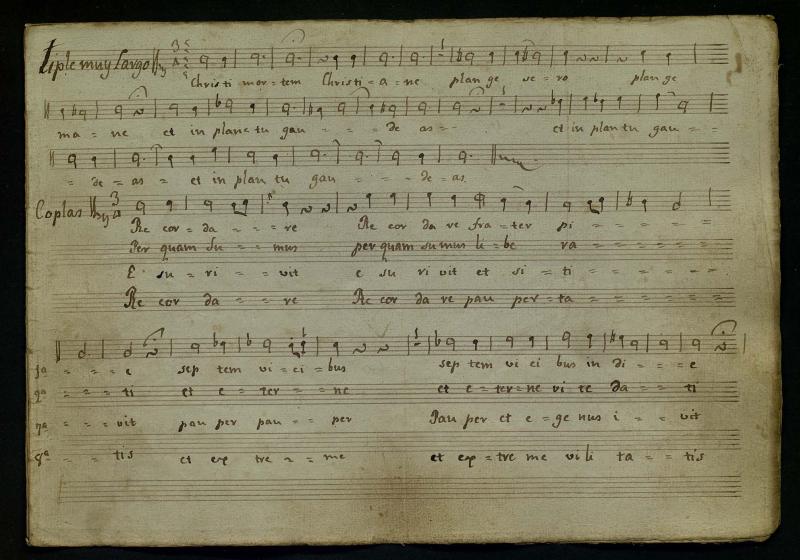 Tiple muy Largo 3
Christi mor = tem Christi = a = ne plan ge se = ro plan ge
ma = ne et in planc tu gau = = = de as = = et in plan tu gau = =
= de = as = et in plan tu gau = = = de = as
Coplas 3
Re cor = da = = = re Re cor da re fra = ter pi = = = = =
Per quam su = = mus per quam su mus li = be ra = = = = =
E su = ri = = vit e su ri vit et si = ti = = = = = =
Re cor da = = re Re cor da re pau per = ta = = = = =
1ª = = = e sep tem vi = ci = bus sep tem vi ci bus in di = = = e
2ª = = = ti et e = ter = = ne et e = ter = ne vi te da = = ti
7ª = = = vit pau per pau = = per Pau per et e = ge nus i = = vit
8ª = = tis et ex tre = = me et ex = tre me vi li ta = = tis